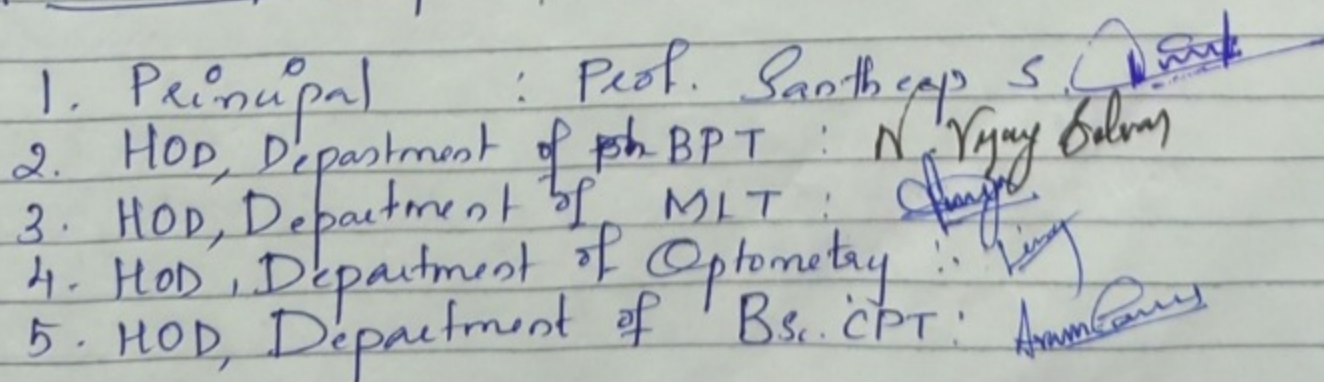 1. Principal : Prof. Santheep S.
2. HOD, Department of BPT : N. Vijay Selvan
3. HOD, Department of MLT :
4. HOD, Department of Optometry :
5. HOD, Department of Bsc. CPT :